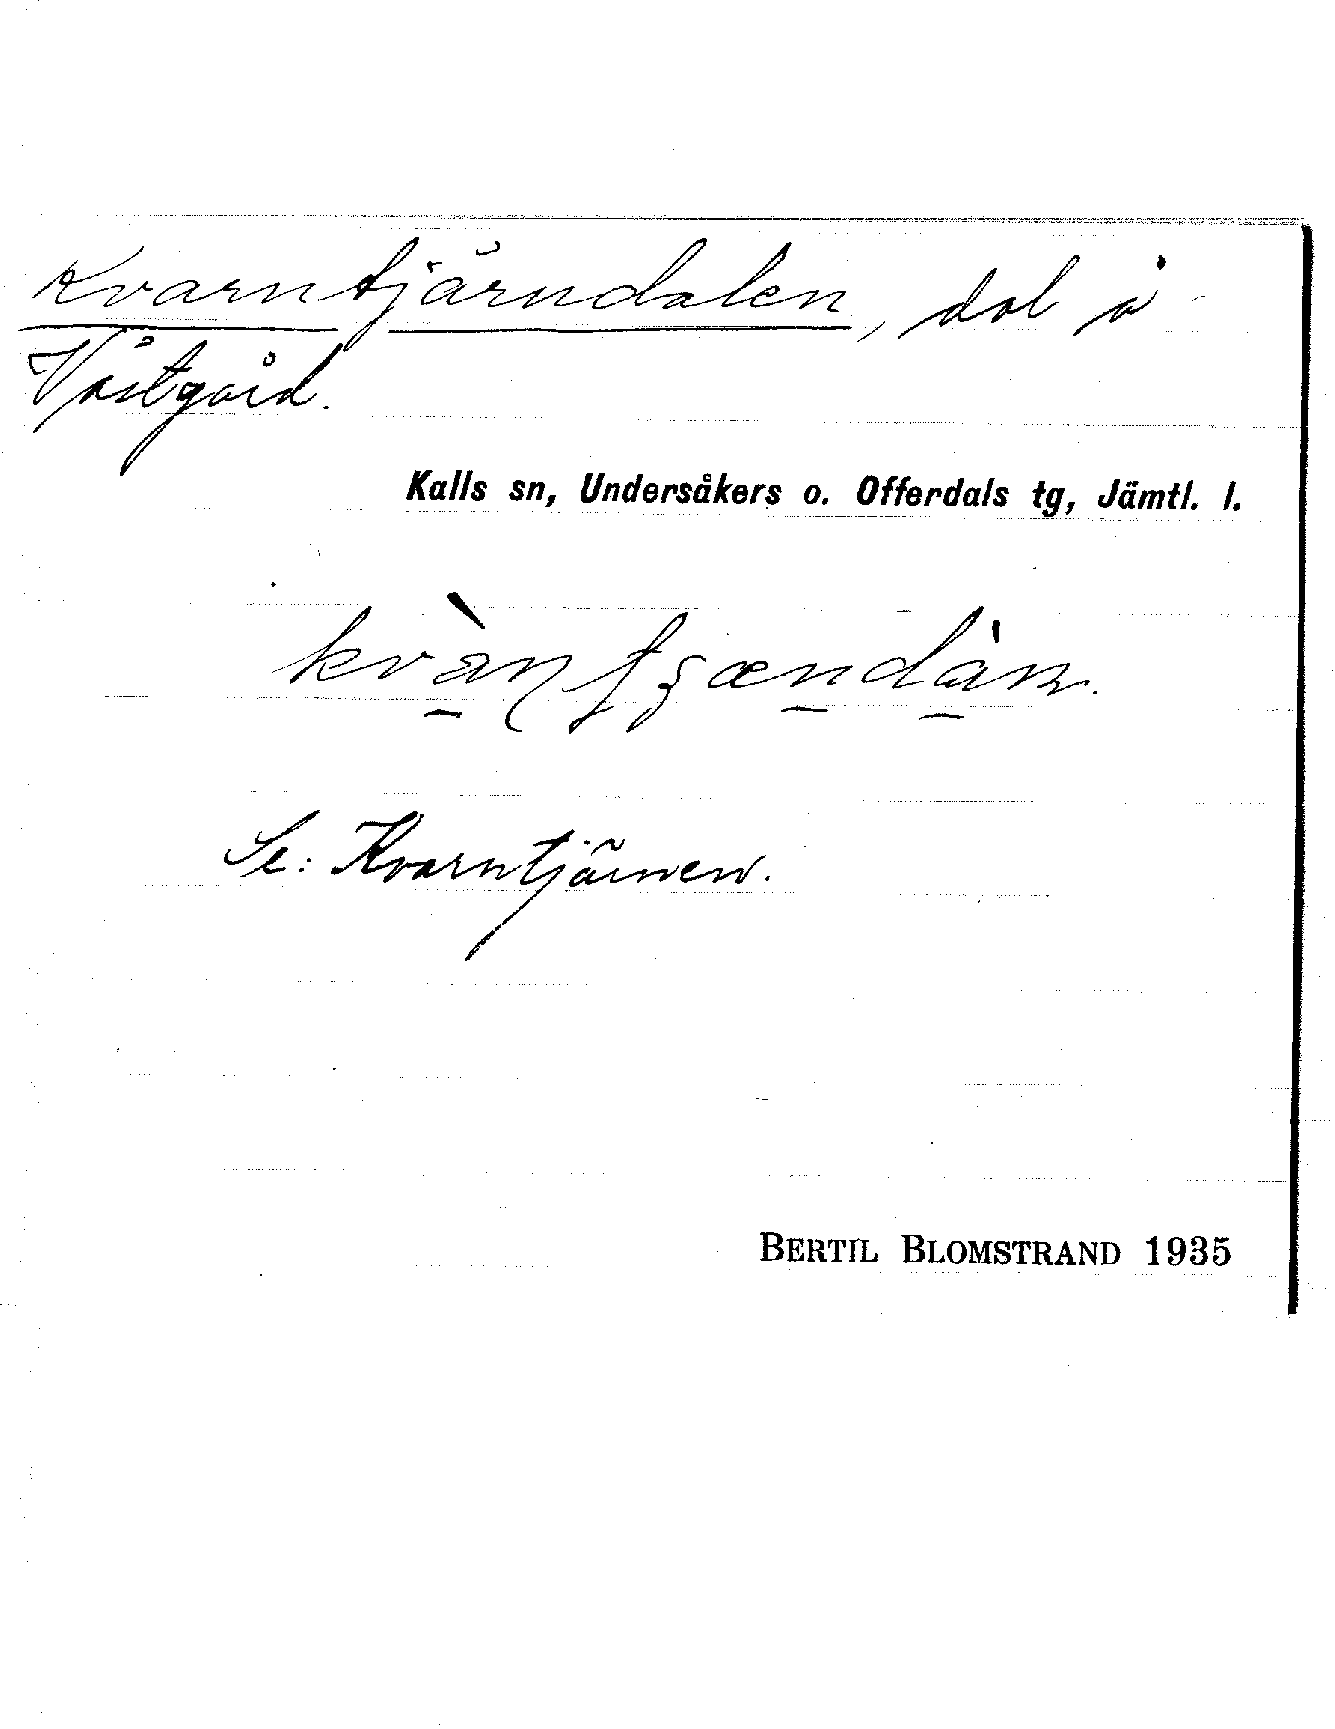 Kvarntjärndalen, dal å
Västgård.
Kalls sn, Undersåkers o. Offerdals tg, Jämtl. l.
Se: Kvarntjärnen.
BERTIL BLOMSTRAND 1935